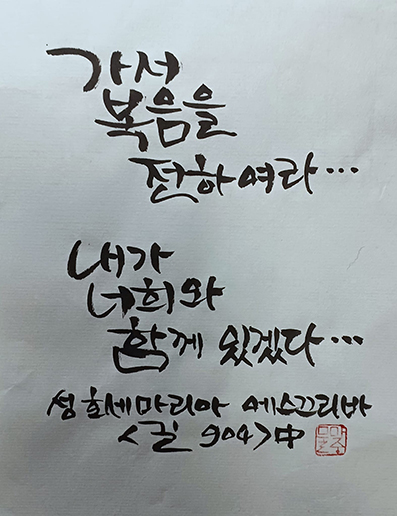 가서
복음을
전하여라...
내가
너희와
함께 있겠다...
성 호세마리아 에스끄리바
<길 904> 中